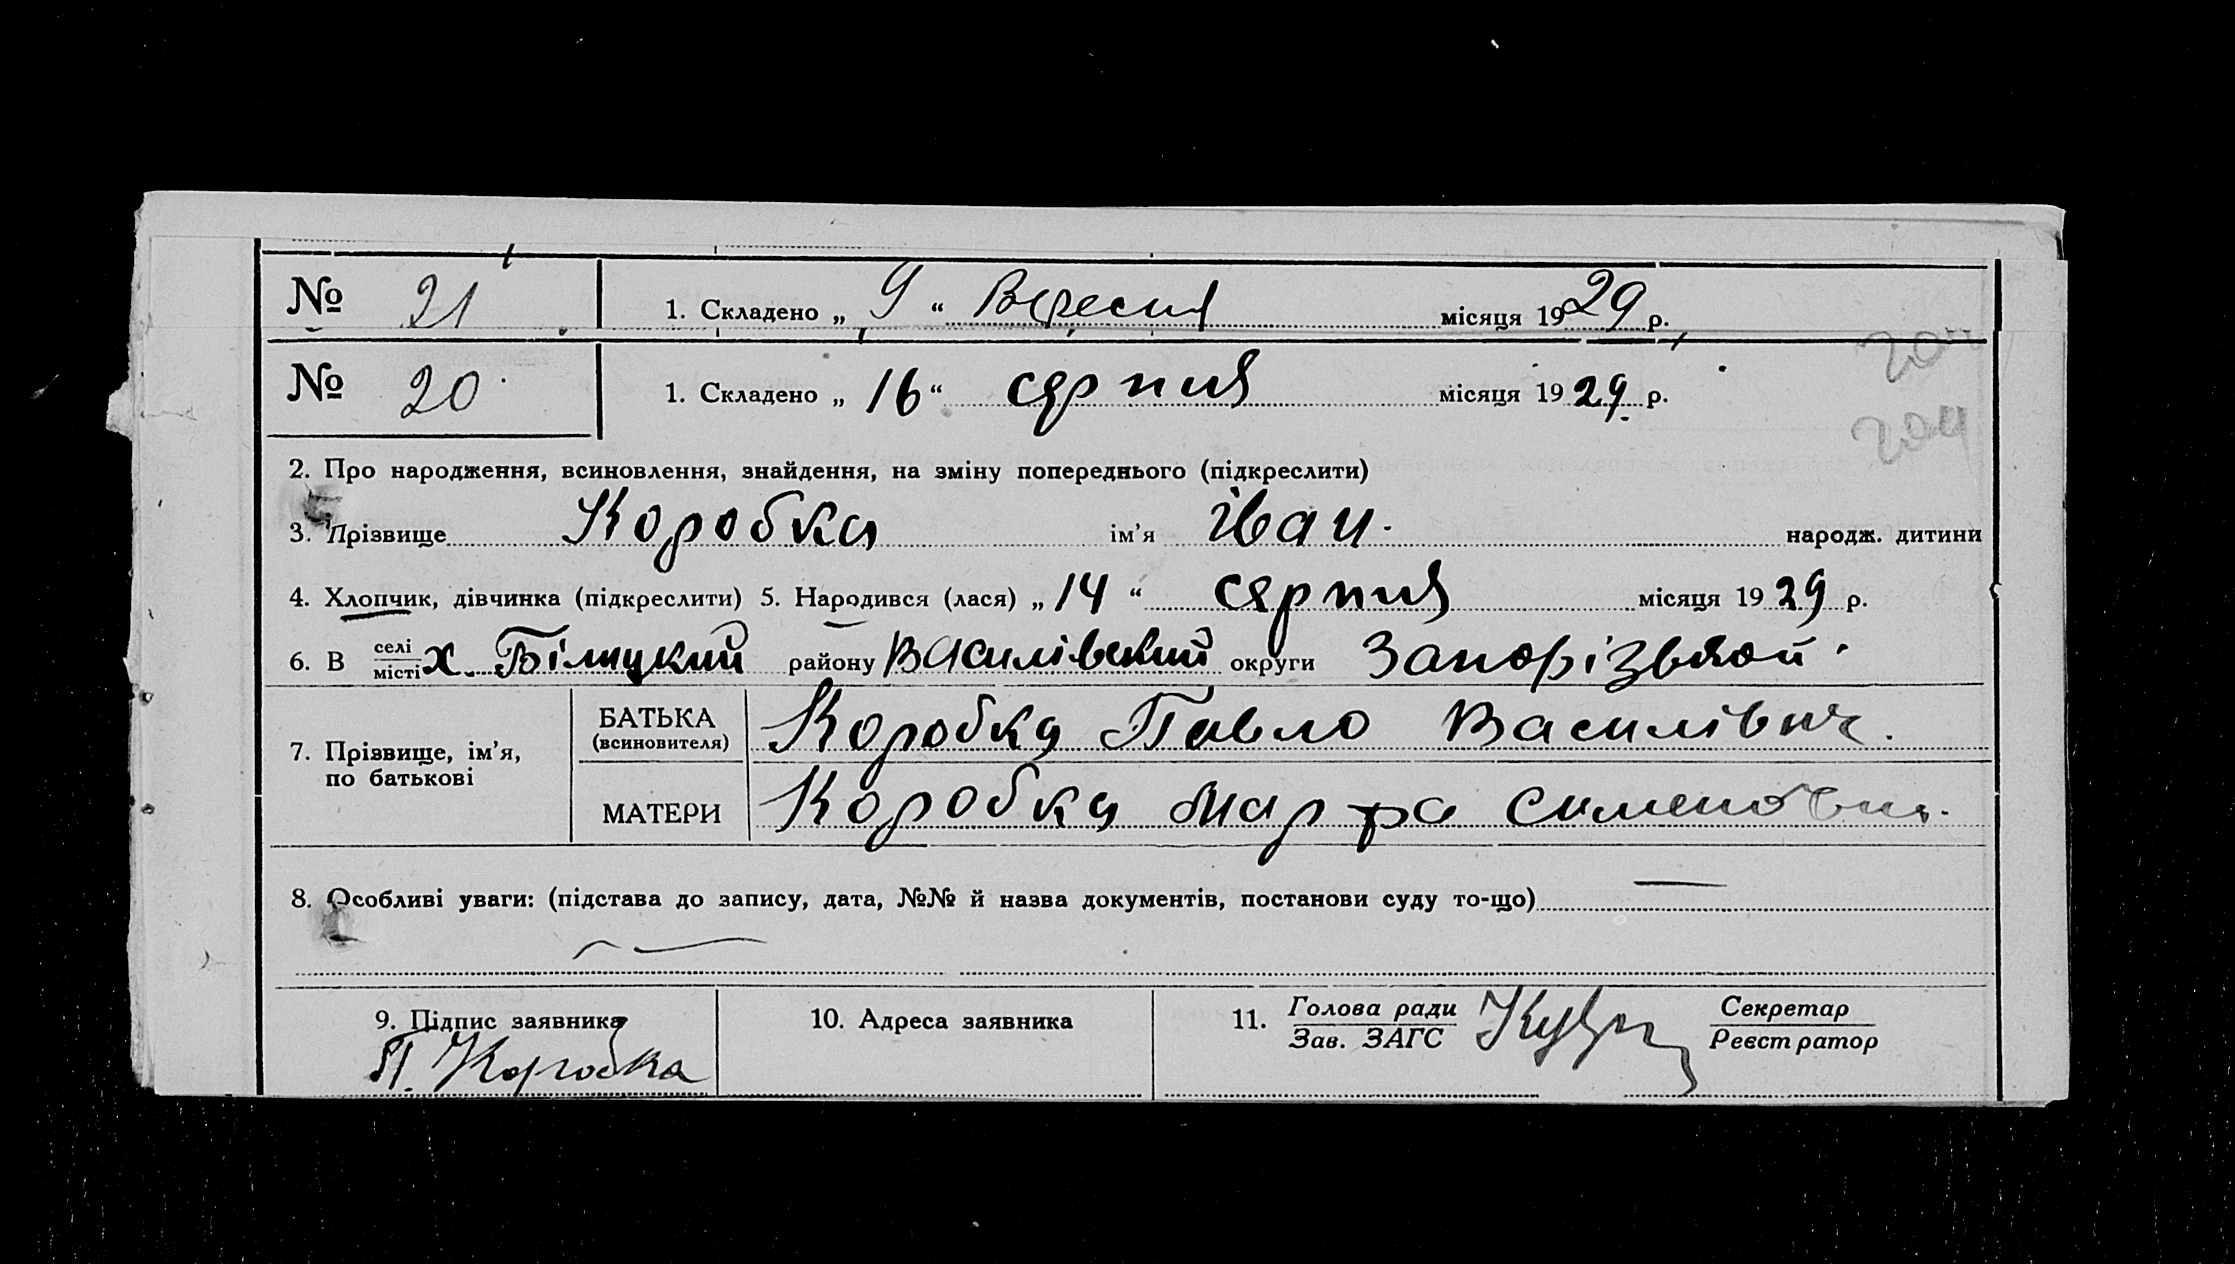 № 21 1. Складено „ 9 “ Вересня місяця 1929 р.
№ 20 1. Складено „ 16 “ серпня місяця 1929 р.
204
204
2. Про народження, всиновлення, знайдення, на зміну попереднього (підкреслити)
3. Прізвище Коробка ім’я Іван народж. дитини
4. Хлопчик, дівчинка (підкреслити) 5. Народився (лася) „ 14 “ серпня місяця 1929 р.
6. В селі/місті х. Білицкий району Василівський округи Запорізькой
7. Прізвище, ім’я, по батькові
БАТЬКА (всиновителя) Коробка Павло Василівич.
МАТЕРИ Коробка Марфа
8. Особливі уваги: (підстава до запису, дата, №№ й назва документів, постанови суду то-що) —
9. Підпис заявника 10. Адреса заявника 11. Голова ради/Зав. ЗАГС Секретар/Реєстратор
П. Коробка